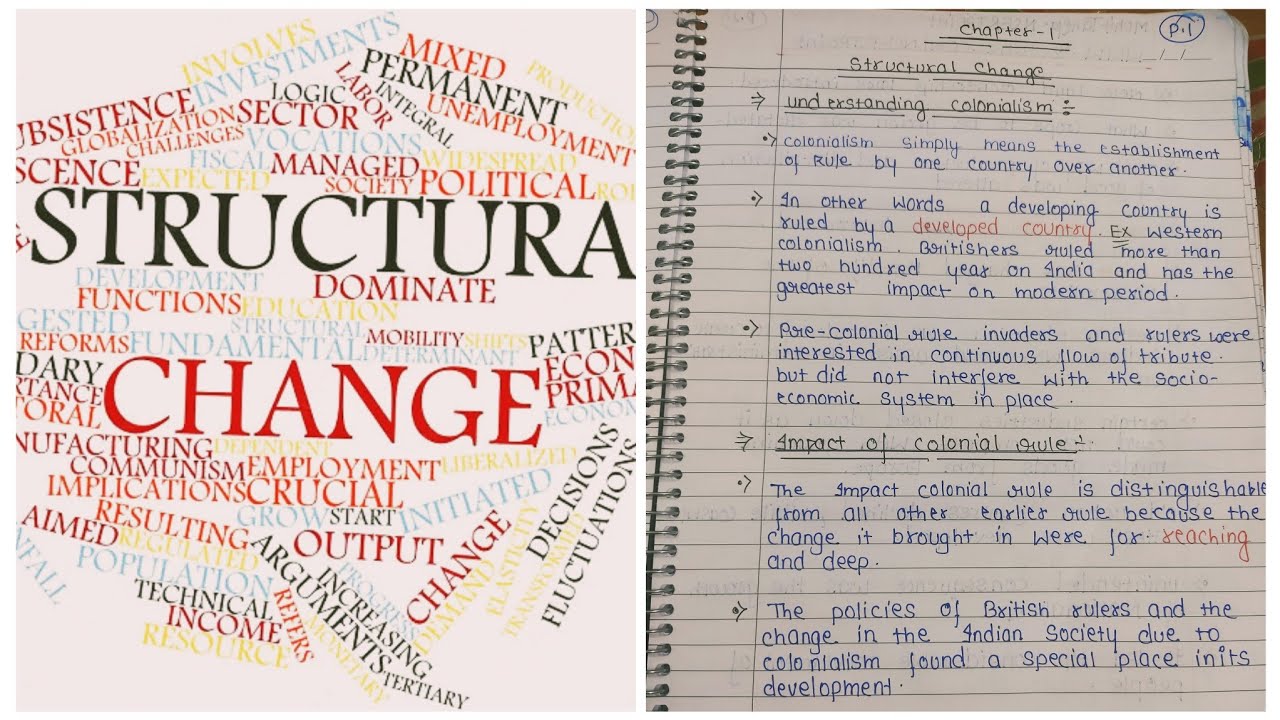 INVOLVES
INVESTMENTS
MIXED
PERMANENT
PRODUCTION
LOGIC
LABOR
INTEGRAL
UBSISTENCE
GLOBALIZATION
CHALLENGES
SECTOR
UNEMPLOYMENT
VOCATIONS
FISCAL
MANAGED
WIDESPREAD
SCENCE
EXPECTED
SOCIETY
POLITICAL
ROL
STRUCTURA
DEVELOPMENT
DOMINATE
FUNCTIONS
EDUCATION
GESTED
STRUCTURAL
MOBILITY
SHIFTS
PATTER
REFORMS
FUNDAMENTAL
DETERMINANT
ECON
DARY
CHANGE
PRIMA
RTANCE
ECONOM
TORAL
NUFACTURING
DEPENDENT
COMMUNISM
EMPLOYMENT
LIBERALIZED
IMPLICATIONS
CRUCIAL
DECISIONS
FLUCTUATIONS
AIMED
RESULTING
GROW
START
INITIATED
REGULATED
OUTPUT
CHANGE
NFALL
POPULATION
ARGUMENTS
INCREASING
PROGRESS
DEMAND
ELASTICITY
TRANSFORMED
TECHNICAL
REFERS
MONETARY
INCOME
RESOURCE
TERTIARY
P.1
Chapter-1
Structural Change
⇒ understanding colonialism :-
•> colonialism simply means the establishment
of Rule by one country over another.
•> In other words a developing country is
ruled by a developed country. Ex western
colonialism. Britishers ruled more than
two hundred year on India and has the
greatest impact on modern period.
•> Pre-colonial rule invaders and rulers were
interested in continuous flow of tribute.
but did not interfere with the socio-
economic system in place.
⇒ Impact of colonial rule :-
•> The Impact colonial rule is distinguishable
from all other earlier rule because the
change it brought in were for reaching
and deep.
•> The policies of British rulers and the
change in the Indian Society due to
colonialism found a special place in its
development.